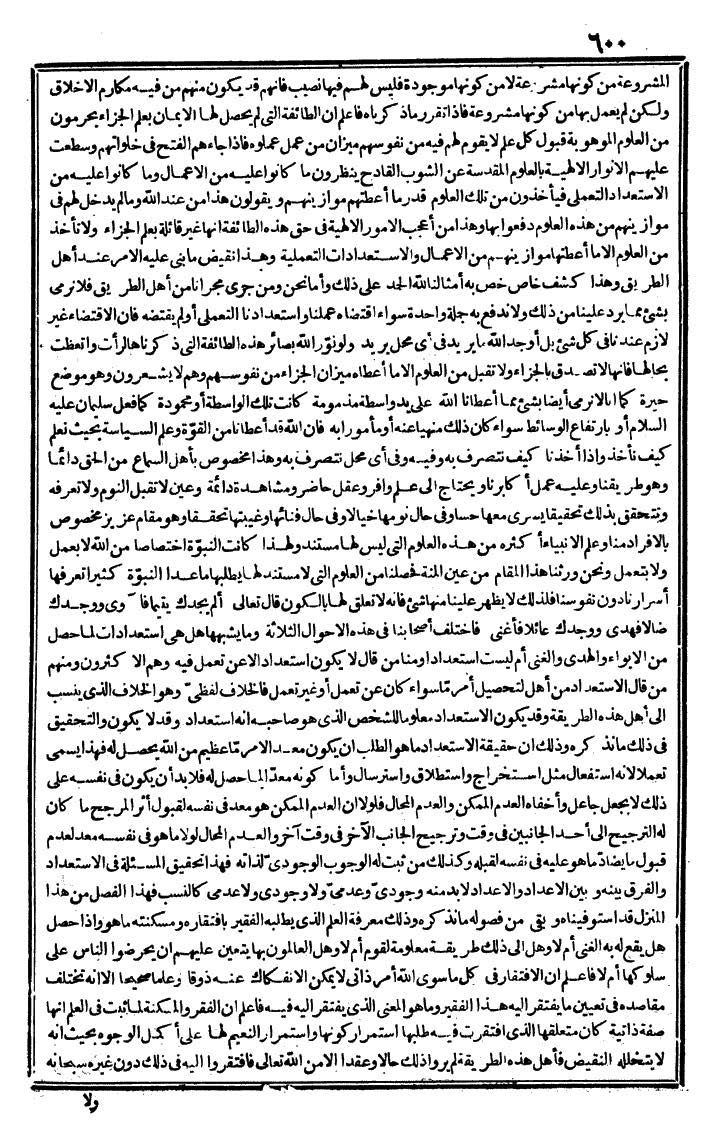 ٦٠٠
المشروعة من كونها مشروعة لا من كونها موجودة فليس لهم فيها نصيب فانهم قد يكون منهم من فيه مكارم الاخلاق
ولكن لم يعمل بها من كونها مشروعة فاذا تقرر ماذكرناه فاعلم ان الطائفة التى لم يحصل لها الايمان بعلم الجزاء يحرمون
من العلوم الموهوبة قبول كل علم لا يقوم لهم فيه من نفوسهم ميزان من عمل عملوه فاذا جاءهم الفتح فى خلواتهم وسطعت
عليهم الانوار الالهية بالعلوم المقدسة عن الشوب القادح ينظرون ما كانوا عليه من الاعمال وما كانوا عليه من
الاستعداد التعملى فيأخذون من تلك العلوم قدر ما أعطتهم موازينهم و يقولون هذا من عند الله وما لم يدخل لهم فى
موازينهم من هذه العلوم دفعوا بها وهذا من أعجب الامور الالهية فى حق هذه الطائفة انها غير قائلة بعلم الجزاء ولا تأخذ
من العلوم الا ما أعطتها موازينهم من الاعمال والاستعدادات التعملية وهذا نقيض ما بنى عليه الامر عند أهل
الطريق وهذا كشف خاص خص به أمثالنا لله الحمد على ذلك وأما نحن ومن جرى مجرانا من أهل الطريق فلا نرمى
بشئ مما يرد علينا من ذلك ولا ندفع به جلة واحدة سواء اقتضاه عملنا واستعدادنا التعملى أو لم يقتضه فان الاقتضاء غير
لازم عندنا فى كل شئ بل أوجد الله ما يريد فى أى محل يريد ولو نوّر الله بصائر هذه الطائفة التى ذكرناها لرأت واتعظت
بحالها فانها لا تصدق بالجزاء ولا تقبل من العلوم الا ما أعطاه ميزان الجزاء من نفوسهم وهم لا يشعرون وهو موضع
حيرة كما انا لا نرمى أيضا بشئ مما أعطانا الله على يد واسطة مذمومة كانت تلك الواسطة أو محمودة كما فعل سليمان عليه
السلام أو بارتفاع الوسائط سواء كان ذلك منهيا عنه أو مأمورا به فان الله قد أعطانا من القوّة وعلم السياسة بحيث نعلم
كيف نأخذ واذا أخذنا كيف نتصرف به وفيه وفى أى محل نتصرف به وهذا مخصوص بأهل السماع من الحق دائما
وهو طريقنا وعليه عمل أكابرنا و يحتاج الى علم وافر وعقل حاضر ومشاهدة دائمة وعين لا تقبل النوم ولا تعرفه
وتتحقق بذلك تحقيقا يسرى معها حسا وفى حال نومها خيالا وفى حال فنائها وغيبتها تحققا وهو مقام عزيز مخصوص
بالافراد منا وعلم الانبياء أكثره من هذه العلوم التى ليس لها مستند ولهذا كانت النبوّة اختصاصا من الله لا بعمل
ولا بتعمل ونحن ورثنا هذا المقام من عين المنة فحصلنا من العلوم التى لا مستند لها يطلبها ما عدا النبوّة كثيرا تعرفها
أسرارنا دون نفوسنا فلذلك لا يظهر علينا منها شئ فانه لا تعلق لها بالكون قال تعالى ألم يجدك يتيما فآوى ووجدك
ضالا فهدى ووجدك عائلا فأغنى فاختلف أصحابنا فى هذه الاحوال الثلاثة وما يشبهها هل هى استعدادات لما حصل
من الايواء والهدى والغنى أم ليست استعدادا ومنا من قال لا يكون استعداد الا عن تعمل فيه وهم الاكثرون ومنهم
من قال الاستعداد من أهل لتحصيل أمر مّا سواء كان عن تعمل أو غير تعمل فالخلاف لفظىّ وهو الخلاف الذى ينسب
الى أهل هذه الطريقة وقد يكون الاستعداد معلوما للشخص الذى هو صاحبه انه استعداد وقد لا يكون والتحقيق
فى ذلك ما نذكره وذلك ان حقيقة الاستعداد ما هو الطلب ان يكون معد الامر مّا عظيم من الله يحصل له فهذا يسمى
تعملا لانه استفعال مثل استخراج واستطلاق واسترسال وأما كونه معدّا لما حصل له فلا بد أن يكون فى نفسه على
ذلك لا بجعل جاعل وأخفاه العدم الممكن والعدم المحال فلولا ان العدم الممكن هو معد فى نفسه لقبول أثر المرجح ما كان
له الترجيح الى أحد الجانبين فى وقت وترجيح الجانب الآخر فى وقت آخر والعدم المحال لولا ما هو فى نفسه معد لعدم
قبول ما يضادّ ما هو عليه فى نفسه لقبله وكذلك من ثبت له الوجوب الوجودىّ لذاته فهذا تحقيق المسئلة فى الاستعداد
والفرق بينه و بين الاعداد والاعداد لا بد منه وجودىّ وعدمىّ ولا وجودى ولا عدمى كالنسب فهذا الفصل من هذا
المنزل قد استوفيناه و بقى من فصوله ما نذكره وذلك معرفة العلم الذى يطلبه الفقير بافتقاره و مسكنته ما هو واذا حصل
هل يقع له به الغنى أم لا وهل الى ذلك طريقة معلومة لقوم أم لا وهل العالمون بها يتعين عليهم ان يحرضوا الناس على
سلوكها أم لا فاعلم ان الافتقار فى كل ما سوى الله أمر ذاتى لا يمكن الانفكاك عنه ذوقا وعلما صحيحا الا انه تختلف
مقاصده فى تعيين ما يفتقر اليه هذا الفقير وما هو المعنى الذى يفتقر اليه فيه فاعلم ان الفقر والمسكنة لما ثبت فى العلم انها
صفة ذاتية كان متعلقها الذى افتقرت فيه طلبها استمرار كونها واستمرار النعيم لها على أكمل الوجوه بحيث انه
لا يتخلله النقيض فأهل هذه الطريقة لم يروا ذلك حالا وعقدا الا من الله تعالى فافتقروا اليه فى ذلك دون غيره سبحانه
ولا